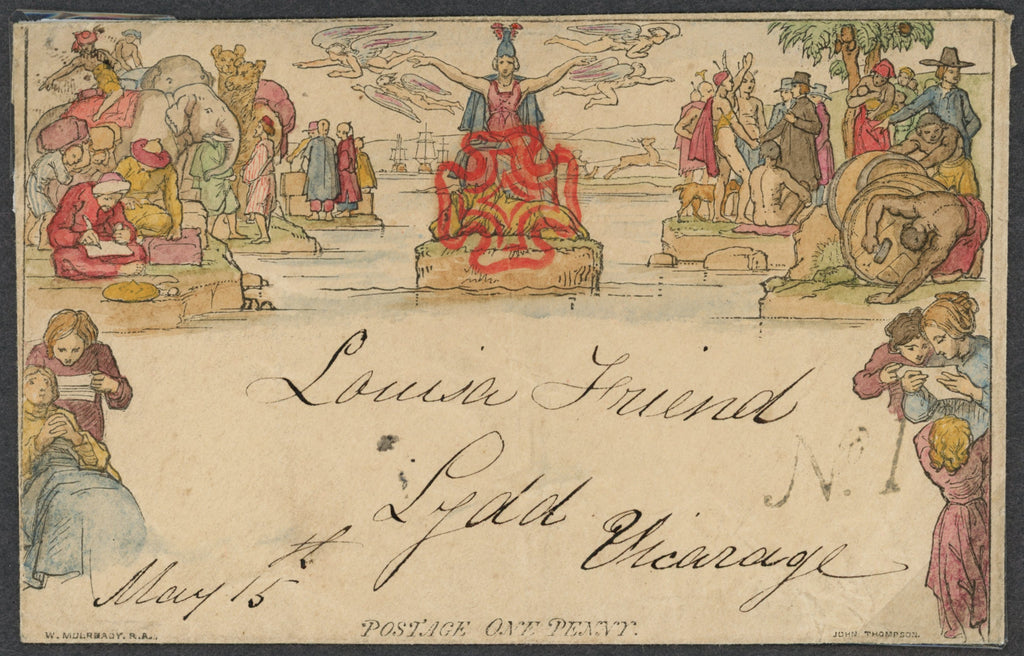 Louisa Friend
Lydd
Vicarage
No. 1
May 15th
POSTAGE ONE PENNY.
W. MULREADY. R.A.
JOHN THOMPSON.